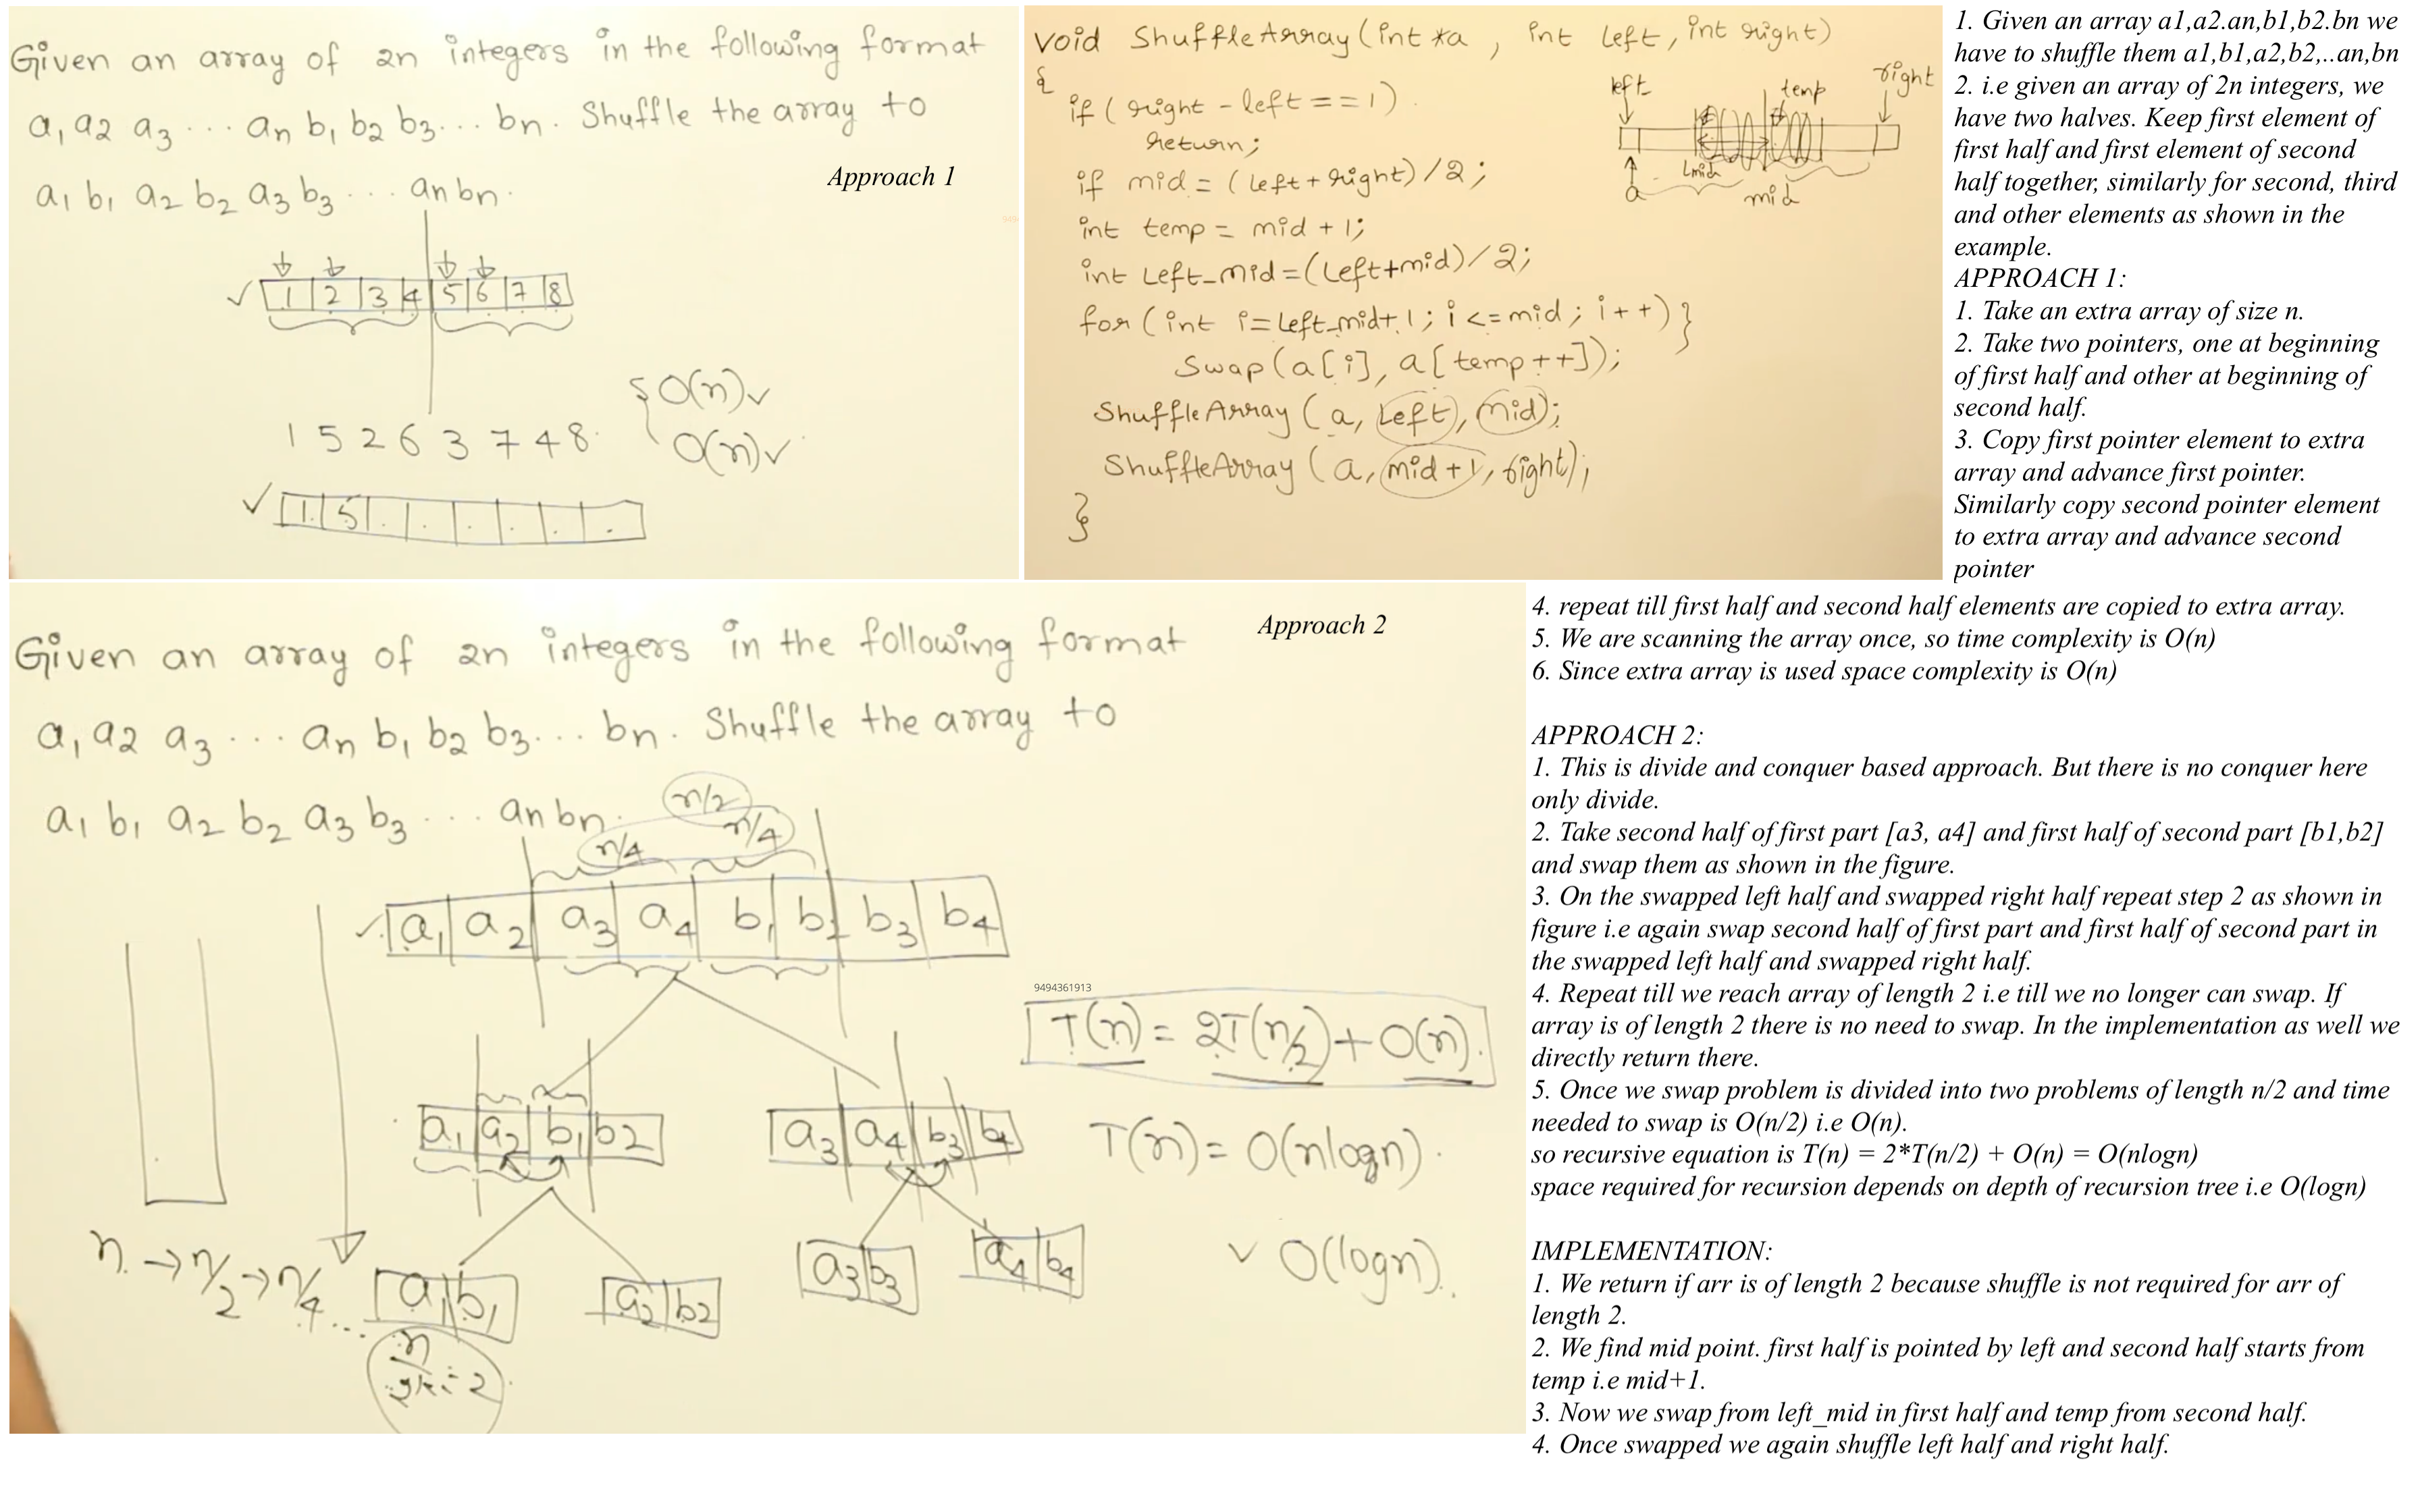 Given an array of 2n integers in the following format
a1 a2 a3 ... an b1 b2 b3... bn. Shuffle the array to
a1 b1 a2 b2 a3 b3 ... an bn.
Approach 1
1 2 3 4 5 6 7 8
O(n)
1 5 2 6 3 7 4 8
O(n)
1 5
void ShuffleArray(int *a, int left, int right)
{
if (right - left == 1)
return;
if mid = (left + right) / 2;
int temp = mid + 1;
int Left_mid = (Left+mid)/2;
for (int i = Left_mid+1; i <= mid; i++) }
Swap(a[i], a[temp++]);
ShuffleArray (a, Left, mid);
ShuffleArray (a, mid+1, right);
}
left
temp
right
Lmid
a
mid
1. Given an array a1,a2.an,b1,b2.bn we
have to shuffle them a1,b1,a2,b2,..an,bn
2. i.e given an array of 2n integers, we
have two halves. Keep first element of
first half and first element of second
half together, similarly for second, third
and other elements as shown in the
example.
APPROACH 1:
1. Take an extra array of size n.
2. Take two pointers, one at beginning
of first half and other at beginning of
second half.
3. Copy first pointer element to extra
array and advance first pointer.
Similarly copy second pointer element
to extra array and advance second
pointer
4. repeat till first half and second half elements are copied to extra array.
5. We are scanning the array once, so time complexity is O(n)
6. Since extra array is used space complexity is O(n)
Given an array of 2n integers in the following format
Approach 2
a1 a2 a3 ... an b1 b2 b3... bn. Shuffle the array to
a1 b1 a2 b2 a3 b3 ... an bn.
n/2
n/4 n/4
a1 a2 a3 a4 b1 b2 b3 b4
9494361913
T(n) = 2T(n/2) + O(n).
a1 a2 b1 b2
a3 a4 b3 b4
T(n) = O(nlogn).
n → n/2 → n/4 ...
a1 b1
a2 b2
a3 b3
a4 b4
O(logn).
n/2k = 2
APPROACH 2:
1. This is divide and conquer based approach. But there is no conquer here
only divide.
2. Take second half of first part [a3, a4] and first half of second part [b1,b2]
and swap them as shown in the figure.
3. On the swapped left half and swapped right half repeat step 2 as shown in
figure i.e again swap second half of first part and first half of second part in
the swapped left half and swapped right half.
4. Repeat till we reach array of length 2 i.e till we no longer can swap. If
array is of length 2 there is no need to swap. In the implementation as well we
directly return there.
5. Once we swap problem is divided into two problems of length n/2 and time
needed to swap is O(n/2) i.e O(n).
so recursive equation is T(n) = 2*T(n/2) + O(n) = O(nlogn)
space required for recursion depends on depth of recursion tree i.e O(logn)
IMPLEMENTATION:
1. We return if arr is of length 2 because shuffle is not required for arr of
length 2.
2. We find mid point. first half is pointed by left and second half starts from
temp i.e mid+1.
3. Now we swap from left_mid in first half and temp from second half.
4. Once swapped we again shuffle left half and right half.